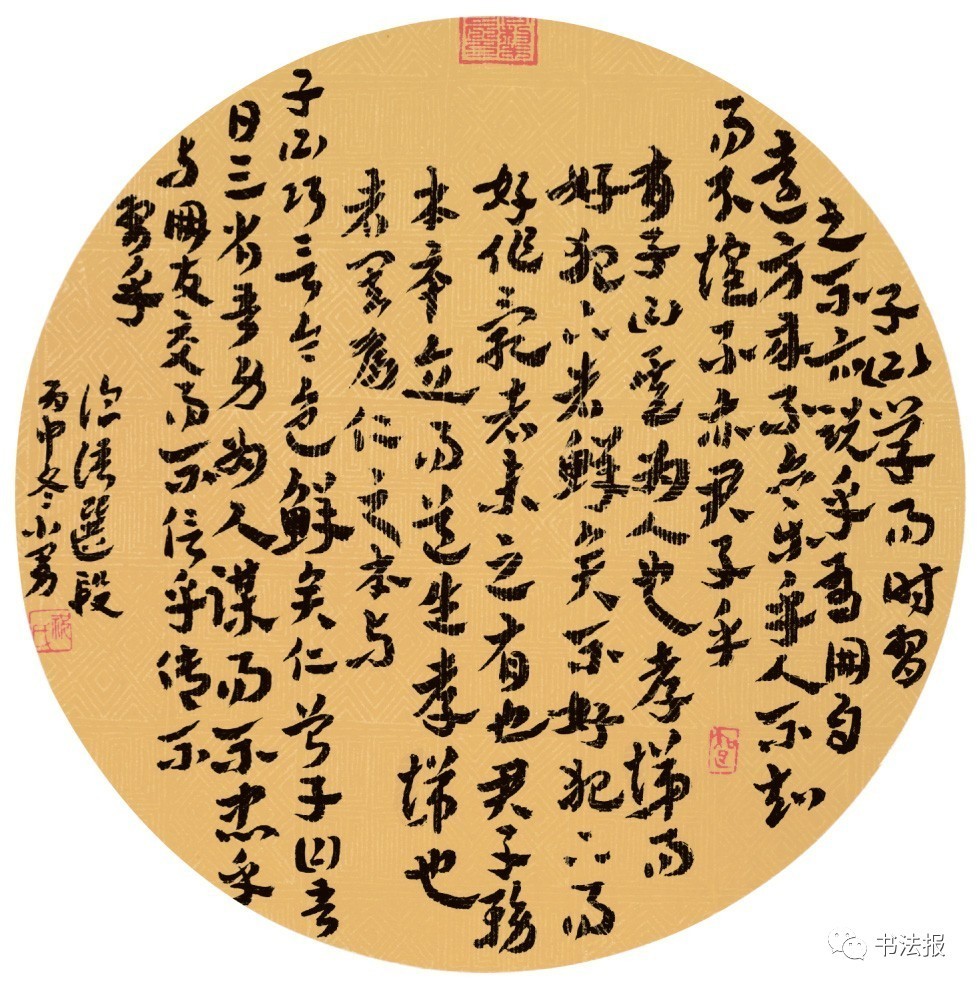 子曰学而时習
之不亦説乎有朋自
遠方来不亦乐乎人不知
而不愠不亦君子乎
有子曰其为人也孝悌而
好犯上者鲜矣不好犯上而
好作亂者未之有也君子務
本本立而道生孝悌也
者其为仁之本与
子曰巧言令色鲜矣仁曾子曰吾
日三省吾身为人謀而不忠乎
与朋友交而不信乎傳不
習乎
論語選段
丙申冬小
书法报